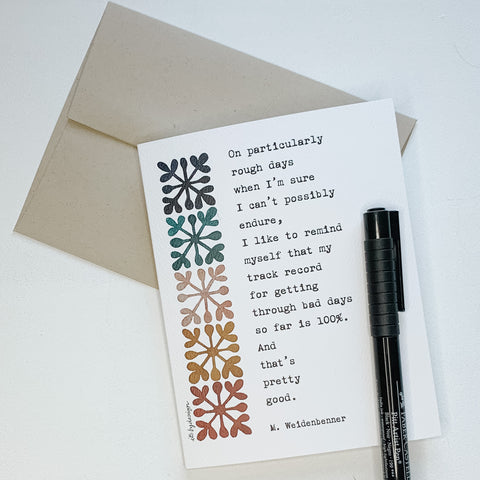 On particularly
rough days
when I'm sure
I can't possibly
endure,
I like to remind
myself that my
track record
for getting
through bad days
so far is 100%.
And
that's
pretty
good.
M. Weidenbenner
Pitt Artist Pen